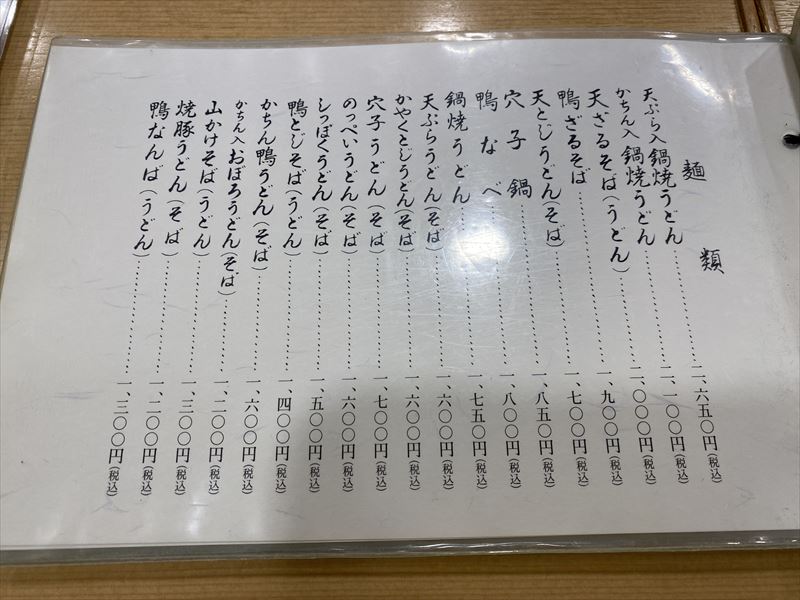 麺類
天ぷら入鍋焼うどん……………二、六五〇円(税込)
かちん入鍋焼うどん……………二、一〇〇円(税込)
天ざるそば(うどん)……………二、〇〇〇円(税込)
鴨ざるそば……………一、九〇〇円(税込)
天とじうどん(そば)……………一、七〇〇円(税込)
穴子鍋……………一、八五〇円(税込)
鴨なべ……………一、八〇〇円(税込)
鍋焼うどん……………一、七五〇円(税込)
天ぷらうどん(そば)……………一、六〇〇円(税込)
かやくとじうどん(そば)……………一、六〇〇円(税込)
穴子うどん(そば)……………一、七〇〇円(税込)
のっぺいうどん(そば)……………一、六〇〇円(税込)
しっぽくうどん(そば)……………一、五〇〇円(税込)
鴨とじそば(うどん)……………一、四〇〇円(税込)
かちん鴨うどん(そば)……………一、六〇〇円(税込)
かちん入おぼろうどん(そば)……………一、二〇〇円(税込)
山かけそば(うどん)……………一、三〇〇円(税込)
焼豚うどん(そば)……………一、二〇〇円(税込)
鴨なんば(うどん)……………一、三〇〇円(税込)